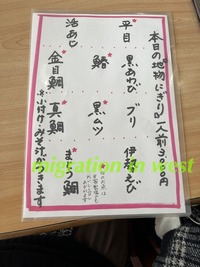 本日の地物にぎり 一人前3000円
平目 黒あわび ブリ 伊勢えび
活あじ 鰆 黒ムツ
金目鯛 真鯛 まとう鯛
※小付け・みそ汁がつきます
migration in west